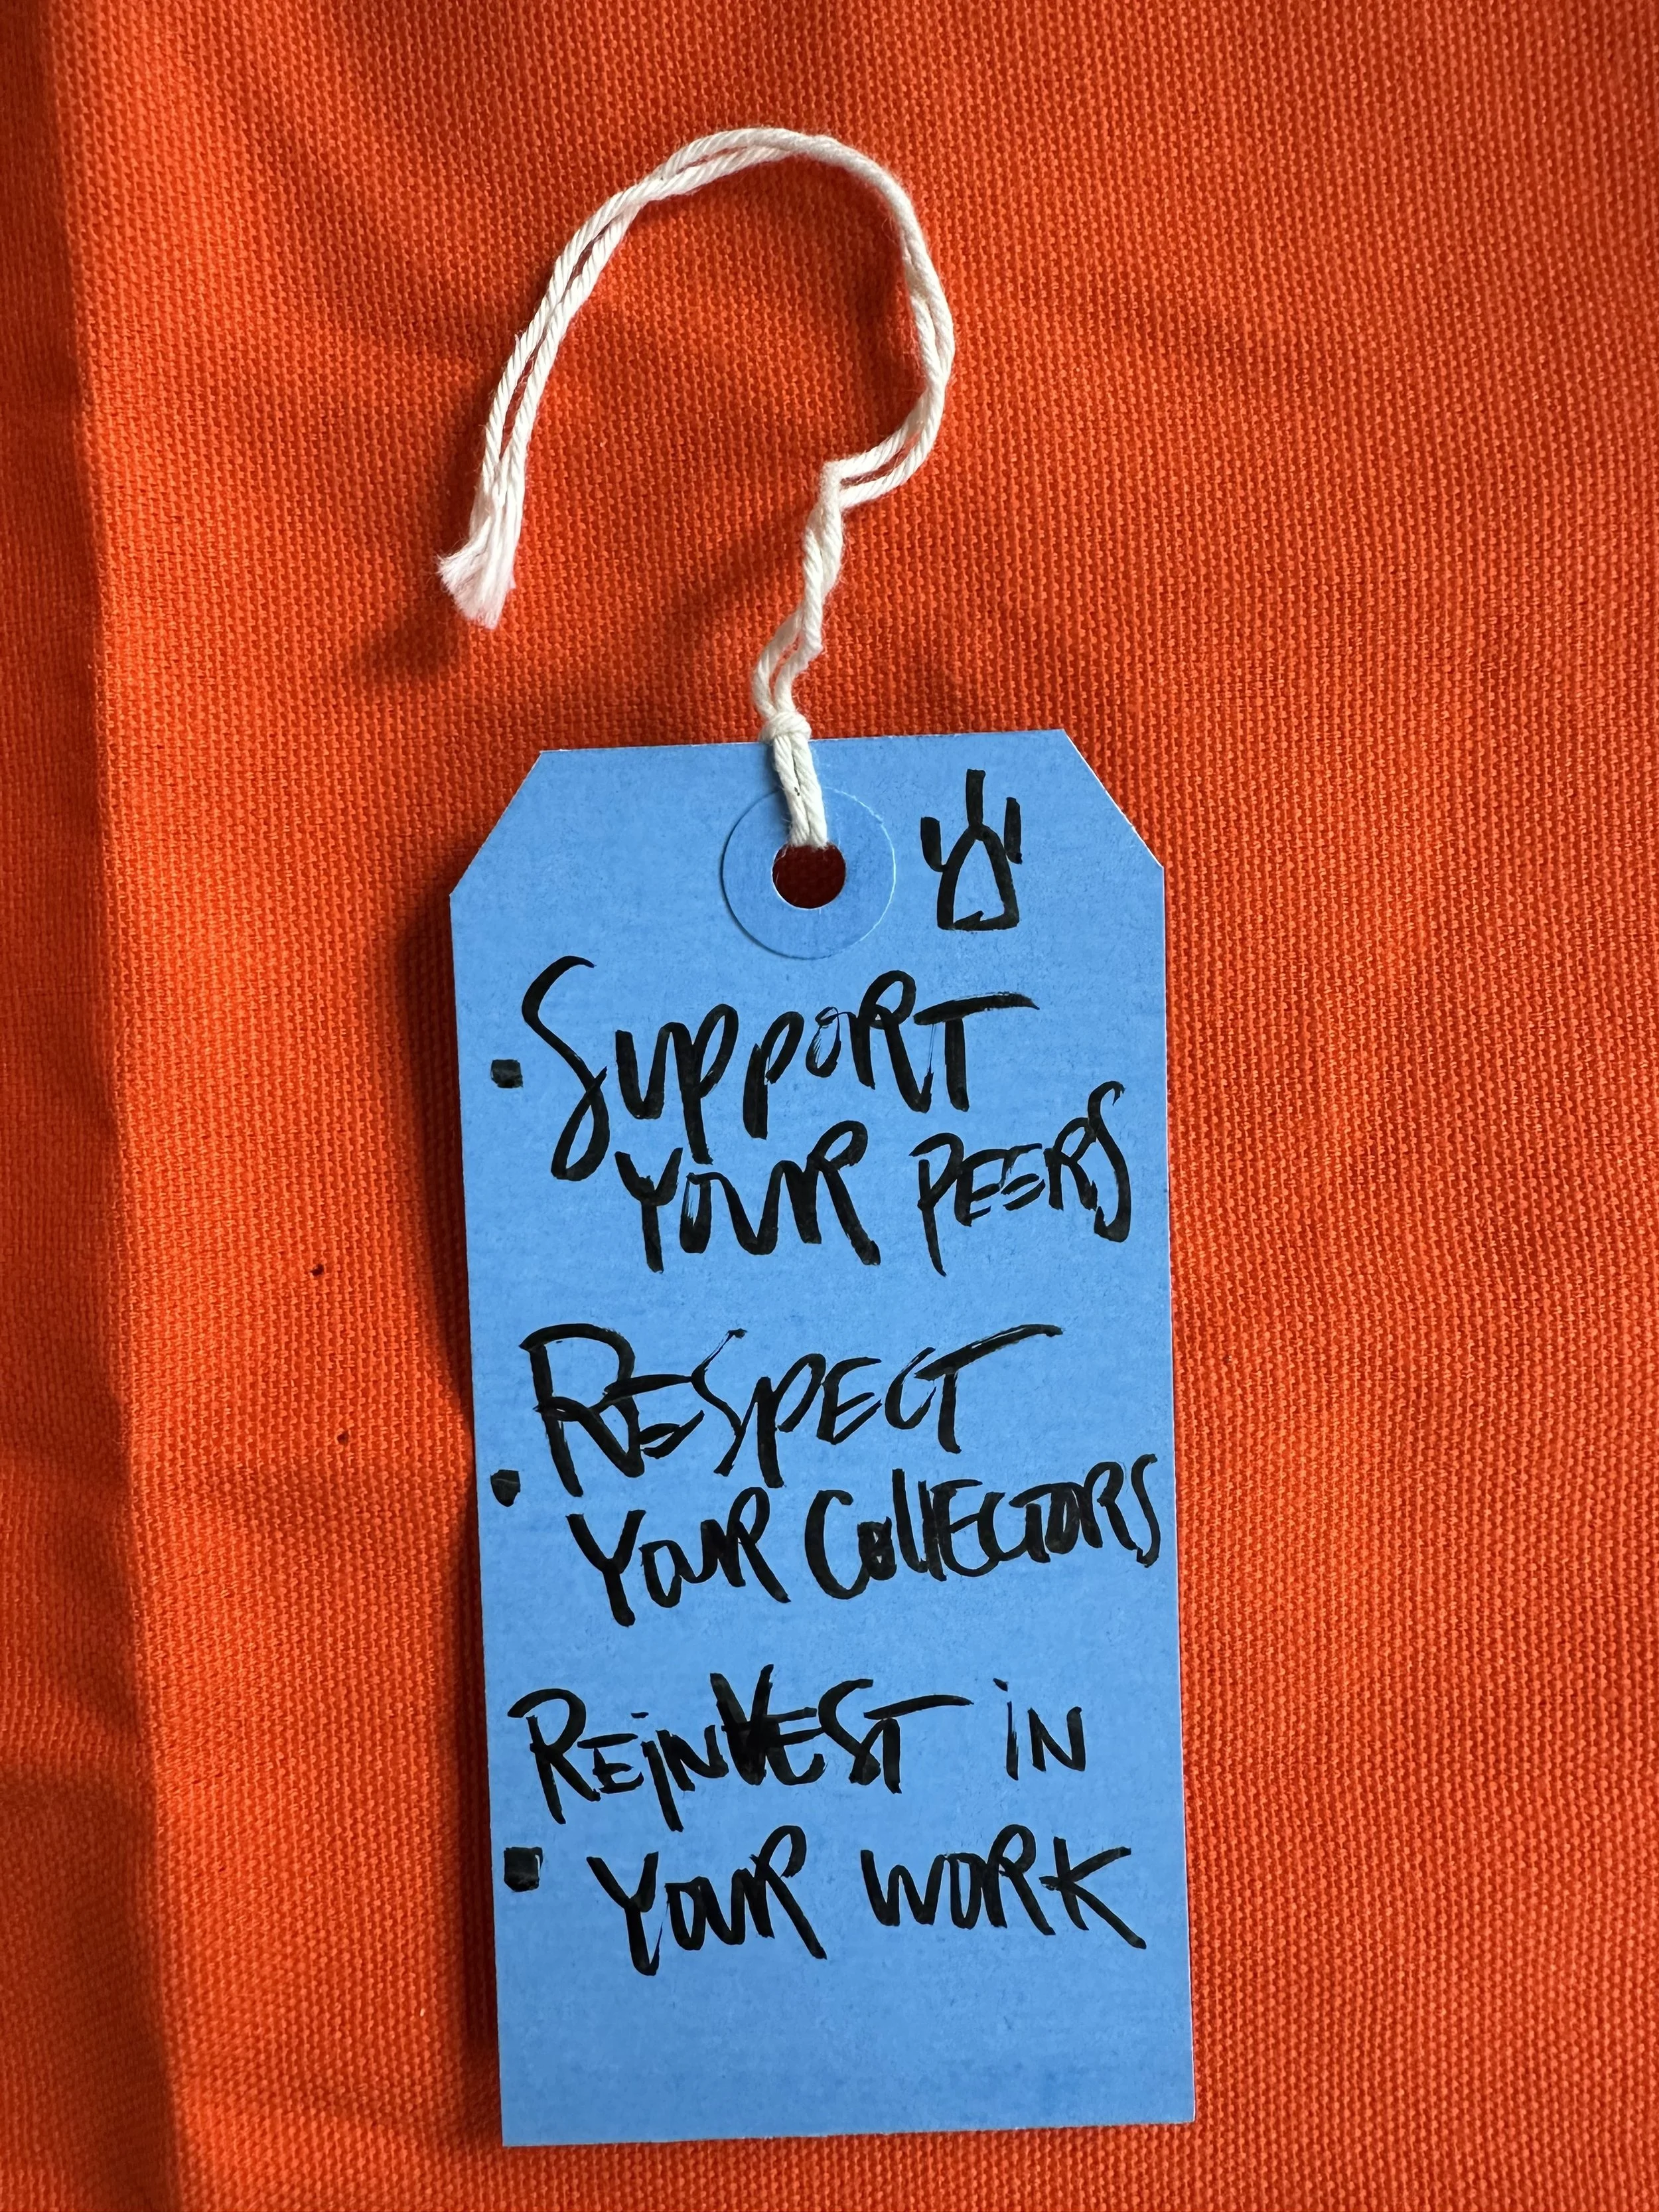 · Support
Your Peers
Respect
· Your Collectors
Reinvest in
· Your Work